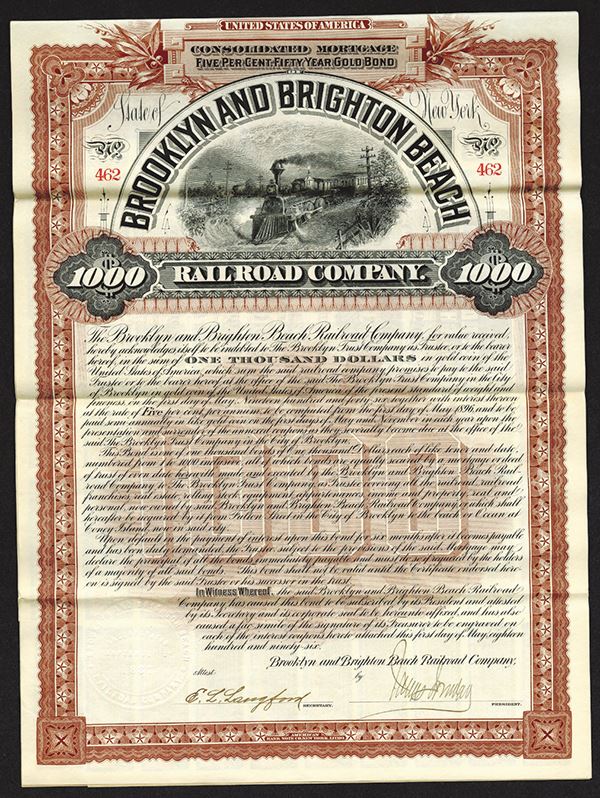 UNITED STATES OF AMERICA
CONSOLIDATED MORTGAGE
FIVE PER CENT. FIFTY YEAR GOLD BOND
OF
State of New York
BROOKLYN AND BRIGHTON BEACH
No No
462 462
1000 RAILROAD COMPANY. 1000
The Brooklyn and Brighton Beach Railroad Company, for value received,
hereby acknowledges itself to be indebted to The Brooklyn Trust Company as Trustee, or to the bearer
hereof, in the sum of ONE THOUSAND DOLLARS in gold coin of the
United States of America, which sum the said railroad company promises to pay to the said
Trustee or to the bearer hereof at the office of the said The Brooklyn Trust Company in the City
of Brooklyn in gold coin of the United States of America of the present standard of weight and
fineness on the first day of May, Nineteen hundred and forty-six, together with interest thereon
at the rate of Five per cent. per annum, to be computed from the first day of May 1896, and to be
paid semi-annually in like gold coin on the first days of May and November in each year upon the
presentation and surrender of the annexed coupons as they severally become due at the office of the
said The Brooklyn Trust Company in the City of Brooklyn.
This Bond is one of one thousand bonds of One thousand Dollars each of like tenor and date,
numbered from 1 to 1000 inclusive, all of which bonds are equally secured by a mortgage or deed
of trust of even date herewith duly made and executed by The Brooklyn and Brighton Beach Rail-
road Company to The Brooklyn Trust Company, in Trustee covering all the railroad, railroad
franchises, real estate, rolling stock, equipment, appurtenances, income and property, real and
personal, now owned by said Brooklyn and Brighton Beach Railroad Company, or which shall
hereafter be acquired by it from Fulton Street in the City of Brooklyn to the beach or Ocean at
Coney Island, now in said city.
Upon default in the payment of interest upon this bond for six months after it becomes payable
and has been duly demanded, the Trustee, subject to the provisions of the said Mortgage may
declare the principal of all the bonds immediately payable and must do so if required by the holders
of a majority of all said bonds. This bond shall not be valid until the Certificate endorsed here-
on is signed by the said Trustee or his successor in the trust.
In Witness Whereof, the said Brooklyn and Brighton Beach Railroad
Company has caused this bond to be subscribed by its President and attested
by its Secretary and its corporate seal to be hereunto affixed, and has also
caused a fac simile of the signature of its Treasurer to be engraved on
each of the interest coupons hereto attached this first day of May, eighteen
hundred and ninety-six.
Brooklyn and Brighton Beach Railroad Company,
Attest: by
E. L. Langford SECRETARY. PRESIDENT.
AMERICAN
BANK NOTE CO. NEW YORK.